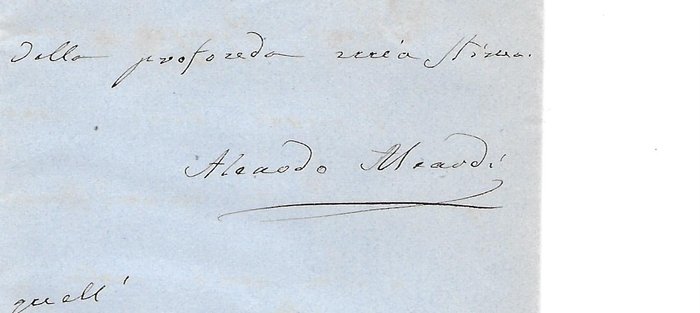 della profonda mia stima.
Aleardo Aleardi
quell'